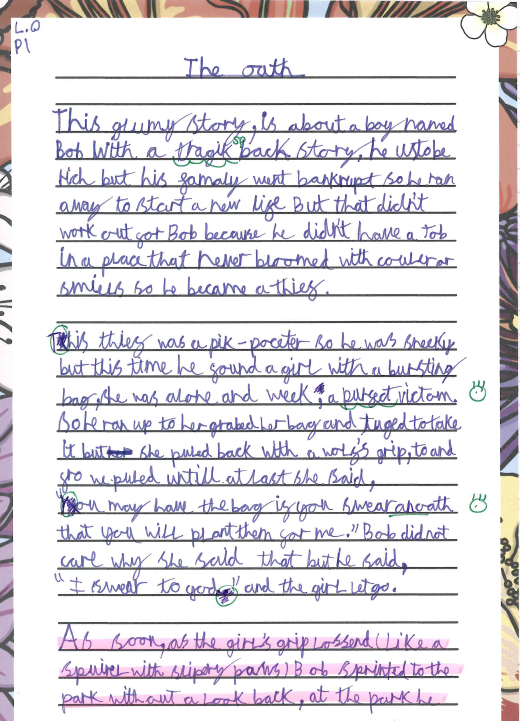 L.O
P1
The oath
This glumy story, is about a boy named
Bob With a tragik sp back story, he ustobe
rich but his famaly went bankrupt so he ran
away to start a new life But that didn't
work out for Bob because he didn't have a Job
in a place that never bloomed with couler or
smiels so he became a thief.
This thief was a pik-poceter so he was sneeky
but this time he found a girl with a bursting
bag, she was alone and week, a purfect victom.
So he ran up to her grabed her bag and tuged to take
it but she puled back with a wolf's grip, to and
fro we puled untill at last she said,
"You may have the bag if you swear an oath
that you will plant them for me." Bob did not
care why she said that but he said,
"I swear to god" and the girl let go.
As soon, as the girl's grip lossend (like a
squirel with slipery paws) Bob sprinted to the
park without a look back, at the park he